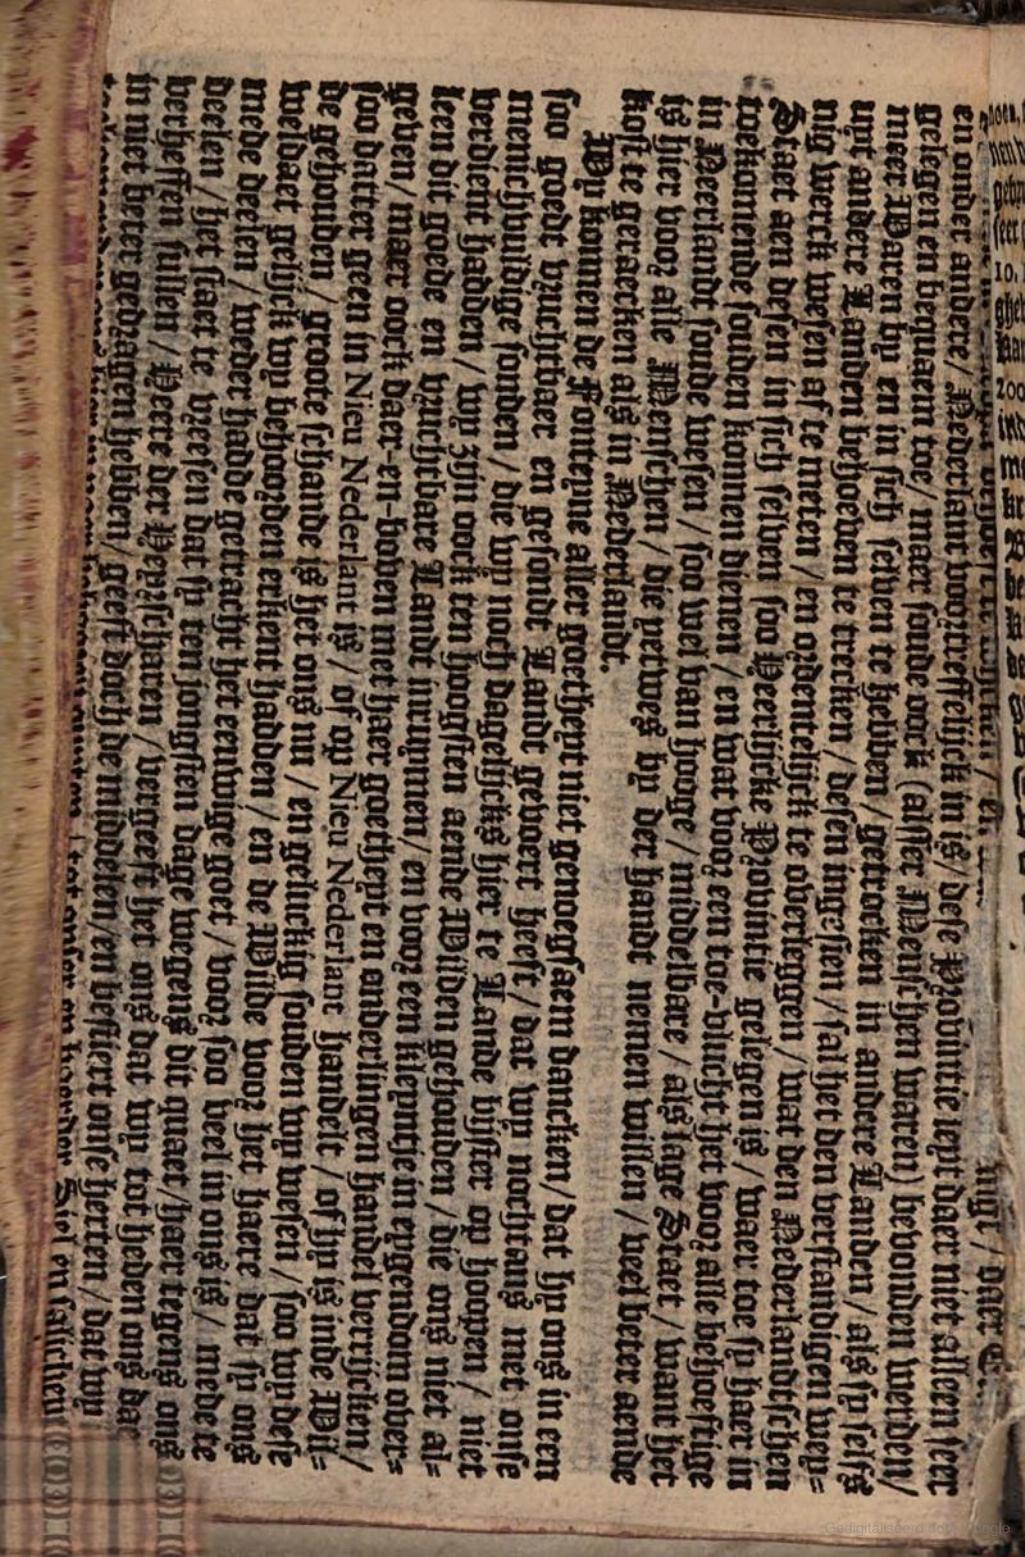 en onder andere / Nederlant voortreffelijck in is / dese Provintie leyt daer niet alleen seer
gelegen en bequaem toe / maer soude oock (alser Menschen waren) bevonden werden /
meer Waren by en in sich selven te hebben / getrocken in andere Landen / als sy selfs
uyt andere Landen behoeven te trecken / desen ingesien / sal het den verstandigen wey-
nig werck wesen af te meten / en ordentelijck te overleggen / wat den Nederlandtschen
Staet aen desen in sich selven soo Heerlijcke Provintie gelegen is / waer toe sy haer in
toekomende souden konnen dienen / en wat voor een toe-vlucht het voor alle behoeftige
in Neerlandt soude wesen / soo wel van hooge / middelbare / als lage Staet / want het
is hier voor alle Menschen / die pettwes by der handt nemen willen / veel beter aende
kost te geraecken als in Nederlandt.
Wy konnen de Fonteyne aller goetheyt niet genoegsaem dancken / dat hy ons in een
soo goedt vruchtbaer en gesondt Landt gevoert heeft / dat wy nochtans met onse
menichvuldige sonden / die wy noch dagelijcks hier te Lande vister op hoopen / niet
verdient hadden / wy zijn oock ten hoogsten aende Wilden gehouden / die ons niet al-
leen dit goede en vruchtbare Landt inruymen / en voor een kleyntje in eygendom over-
geven / maer oock daer-en-boven met haer goetheyt en onderlingen handel verrijcken /
soo datter geen in Nieu Nederlant is / of op Nieu Nederlant handelt / of hy is inde Wil-
de gehouden / groote schande is het ons nu / en geluckig souden wy wesen / soo wy dese
weldaet gelijck wy behoorden erkent hadden / en de Wilde voor het haere dat sy ons
mede deelen / weder hadde getracht het eeuwige goet / voor soo veel in ons is / mede te
delen / het staet te vreesen dat sy ten jongsten dage wegens dit quaet / haer tegens ons
verheffen sullen / Heere der Heyrscharen / vergeeft het ons dat wy tot heden ons daer
in niet beter gedragen hebben / geeft doch de middelen / en bestiert onse herten / dat wy